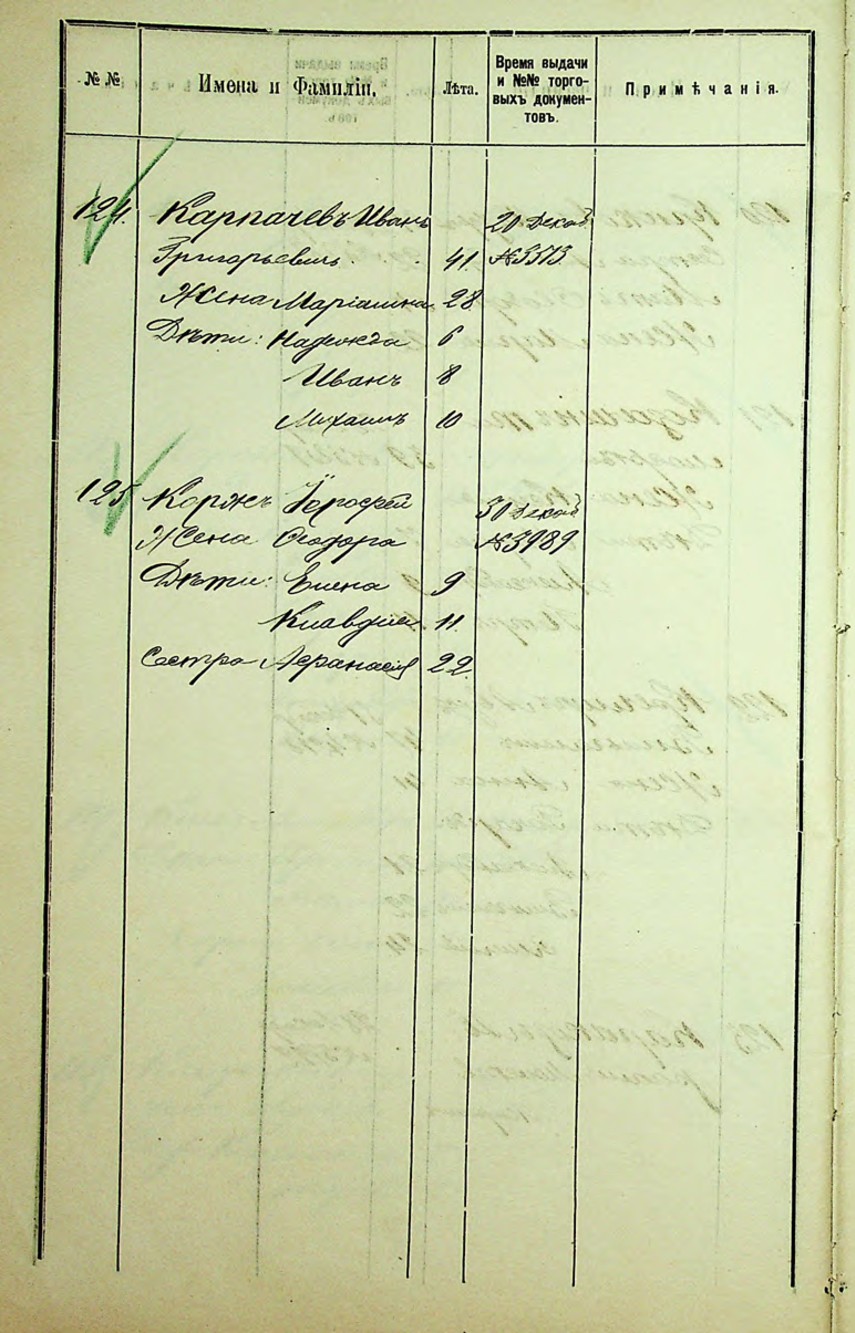 № №
Имена и Фамиліи.
Лѣта.
Время выдачи
и №№ торго-
выхъ докумен-
товъ.
Примѣчанія.
124. Карпачевъ Иванъ 20 Декаб
Григорьевичъ. 41 №3573
Жена Маріанна 28
Дѣти: Надежда 6
Иванъ 8
Михаилъ 10
125 Коржъ Ерофей 30 Декаб
Жена Ѳеодора №3989
Дѣти: Елена 9
Клавдія 11
Сестра Афанасія 22